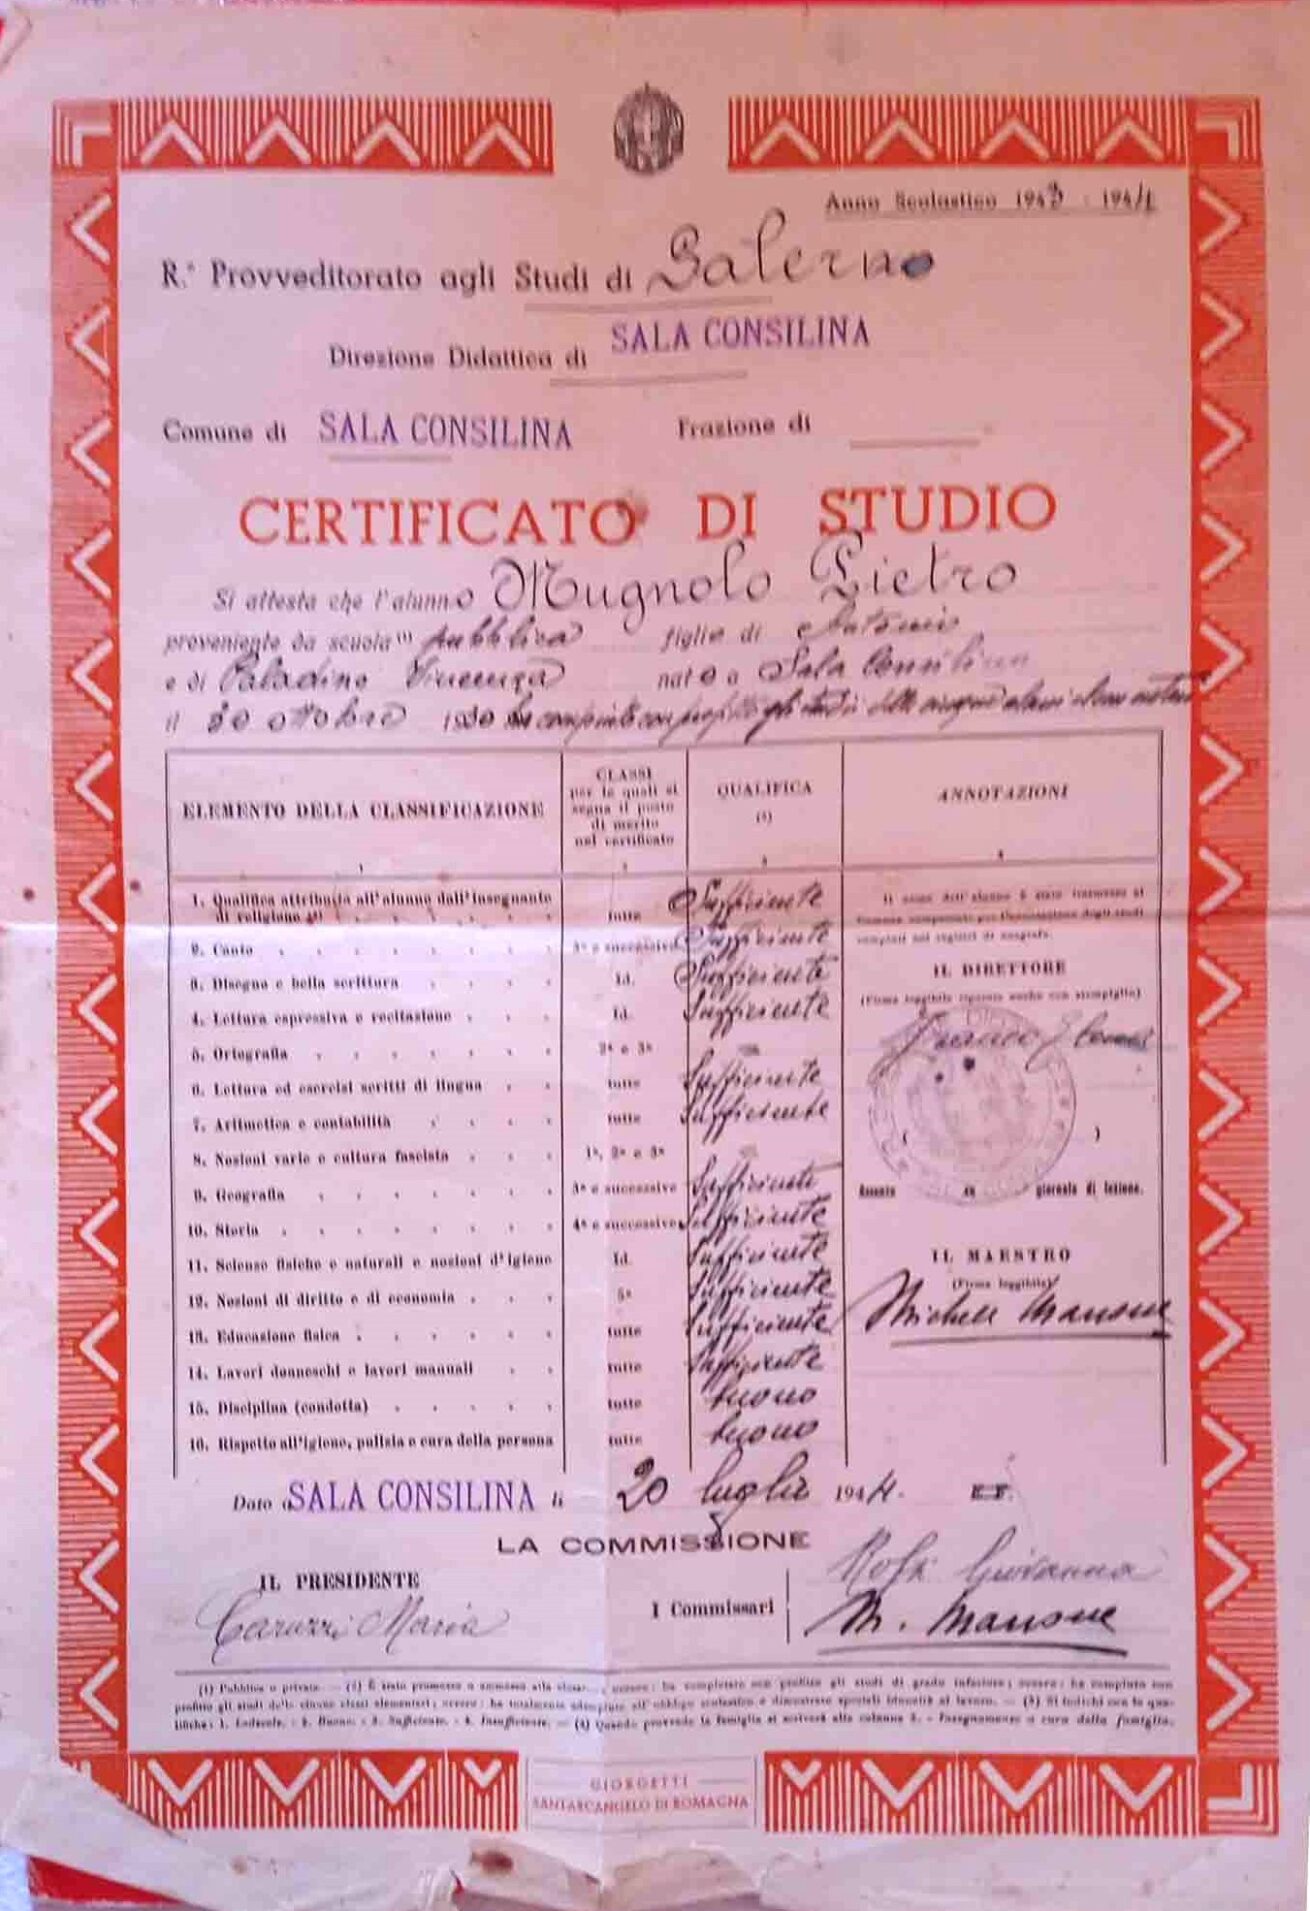 Anno Scolastico 1943 - 1944
R.° Provveditorato agli Studi di Salerno
Direzione Didattica di SALA CONSILINA
Comune di SALA CONSILINA Frazione di
CERTIFICATO DI STUDIO
Si attesta che l'alunno Mugnolo Pietro
proveniente da scuola (1) pubblica figlio di Antonio
e di Paladino Vincenza nato a Sala Consilina
il 30 ottobre 1930 ha compiuto con profitto gli studi delle cinque classi elementari
ELEMENTO DELLA CLASSIFICAZIONE
CLASSI per le quali si segna il posto di merito nel certificato
QUALIFICA (3)
ANNOTAZIONI
1. Qualifica attribuita all'alunno dall'insegnante di religione (4) tutte Sufficiente
2. Canto 3ª e successive Sufficiente
3. Disegno e bella scrittura Id. Sufficiente
4. Lettura espressiva e recitazione Id. Sufficiente
5. Ortografia 2ª e 3ª
6. Lettura ed esercizi scritti di lingua tutte Sufficiente
7. Aritmetica e contabilità tutte Sufficiente
8. Nozioni varie e cultura fascista 1ª, 2ª e 3ª
9. Geografia 3ª e successive Sufficiente
10. Storia 4ª e successive Sufficiente
11. Scienze fisiche e naturali e nozioni d'igiene Id. Sufficiente
12. Nozioni di diritto e di economia 5ª Sufficiente
13. Educazione fisica tutte Sufficiente
14. Lavori donneschi e lavori manuali tutte Sufficiente
15. Disciplina (condotta) tutte buono
16. Rispetto all'igiene, pulizia e cura della persona tutte buono
Il nome dell'alunno è stato trasmesso al
Comune competente per l'annotazione degli studi
compiuti nel registro di anagrafe.
IL DIRETTORE
(Firma leggibile oppure anche con stampiglia)
Assente giornate di lezione.
IL MAESTRO
(Firma leggibile)
Michele Mansone
Dato a SALA CONSILINA li 20 luglio 1944.
LA COMMISSIONE
IL PRESIDENTE
Maria
I Commissari
Giovanna
M. Mansone
(1) Pubblica o privata. — (2) È stato promosso o ammesso alla classe ovvero: ha completato con profitto gli studi di grado inferiore; ovvero: ha compiuto con
profitto gli studi delle cinque classi elementari; ovvero: ha totalmente adempiuto all'obbligo scolastico e dimostrato speciali idoneità al lavoro. — (3) Si indichi con le qua-
lifiche: 1. Lodevole. - 2. Buono. - 3. Sufficiente. - 4. Insufficiente. — (4) Quando provvede la famiglia si scriverà alla colonna 3. - Insegnamento a cura della famiglia.
GIORGETTI
SANTARCANGELO DI ROMAGNA